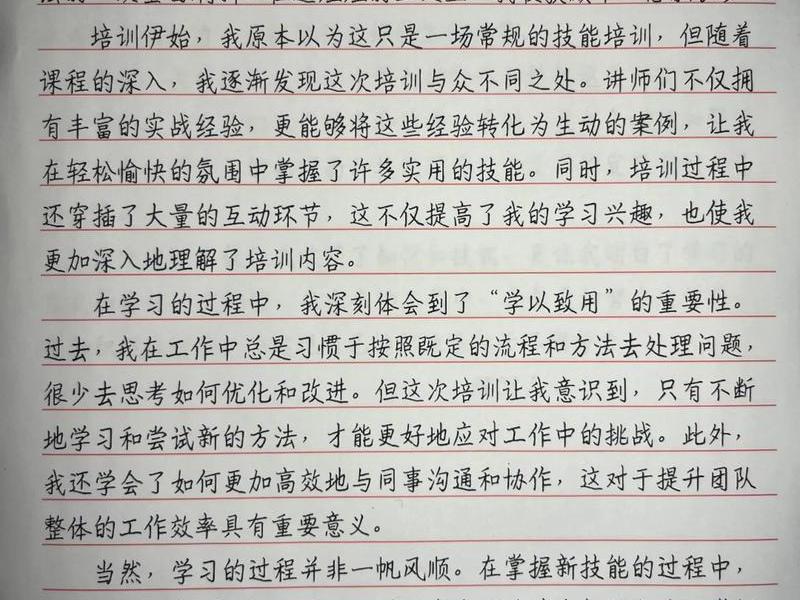 培训伊始，我原本以为这只是一场常规的技能培训，但随着
课程的深入，我逐渐发现这次培训与众不同之处。讲师们不仅拥
有丰富的实战经验，更能够将这些经验转化为生动的案例，让我
在轻松愉快的氛围中掌握了许多实用的技能。同时，培训过程中
还穿插了大量的互动环节，这不仅提高了我的学习兴趣，也使我
更加深入地理解了培训内容。
在学习的过程中，我深刻体会到了“学以致用”的重要性。
过去，我在工作中总是习惯于按照既定的流程和方法去处理问题，
很少去思考如何优化和改进。但这次培训让我意识到，只有不断
地学习和尝试新的方法，才能更好地应对工作中的挑战。此外，
我还学会了如何更加高效地与同事沟通和协作，这对于提升团队
整体的工作效率具有重要意义。
当然，学习的过程并非一帆风顺。在掌握新技能的过程中，